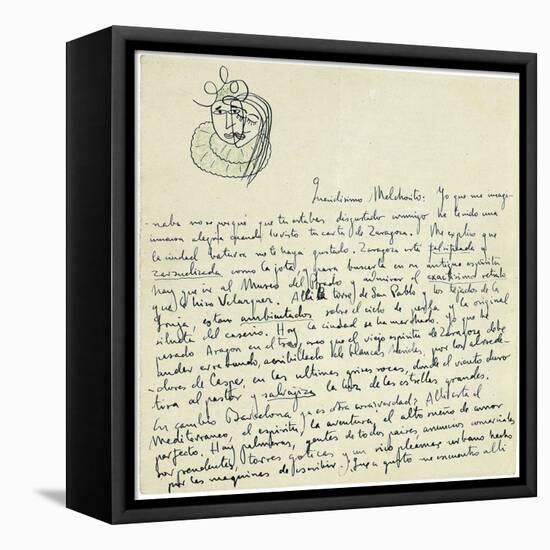 Queridísimo Melchorito: Yo que me imagi-
naba no se porqué que tu estabas disgustado conmigo he tenido una
inmensa alegria cuando he visto tu carta de Zaragoza. Me explico que
la ciudad baturra no te haya gustado. Zaragoza está falsificada y
zarzuelizada como la jota y para buscarla en su antiguo espíritu
hay que ir al Museo del Prado y admirar el exactísimo retrato
que hizo Velazquez. Allí la torre de San Pablo y los tejados de la
Lonja, estan ambientados sobre el cielo de perla y la original
silueta del caserio. Hoy la ciudad se ha marchado. Yo que he
pasado Aragon en el tren, creo que el viejo espíritu de Zaragoza debe
andar arrobando, acribillado de blancas heridas, por los alrede-
dores de Caspe, en las ultimas grises rocas, donde el viento duro
tira al pastor y salvajiza la luz de las estrellas grandes.
En cambio Barcelona ya es otra cosa ¿verdad? Allí está el
Mediterraneo, el espíritu, la aventura, el alto sueño de amor
perfecto. Hay palmeras, gentes de todos paises anuncios comerciales
sorprendentes, torres goticas y un rico pleamar urbano hecho
por las maquinas de escribir. ¡Que a gusto me encuentro allí